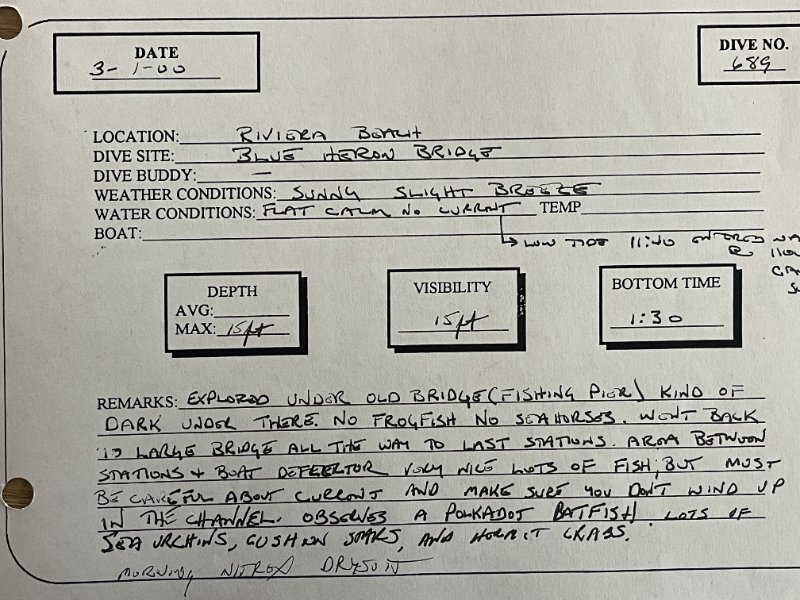 DATE
3-1-00
DIVE NO.
689
LOCATION: RIVIERA BEACH
DIVE SITE: BLUE HERON BRIDGE
DIVE BUDDY: —
WEATHER CONDITIONS: SUNNY SLIGHT BREEZE
WATER CONDITIONS: FLAT CALM NO CURRENT TEMP
BOAT:
LOW TIDE 11:40 ENTERED WA
@ 1100
DEPTH
AVG:
MAX: 15ft
VISIBILITY
15ft
BOTTOM TIME
1:30
REMARKS: EXPLORED UNDER OLD BRIDGE (FISHING PIER) KIND OF
DARK UNDER THERE. NO FROGFISH NO SEAHORSES. WENT BACK
TO LARGE BRIDGE ALL THE WAY TO LAST STATIONS. AREA BETWEEN
STATIONS + BOAT DEFLECTOR VERY NICE LOTS OF FISH; BUT MUST
BE CAREFUL ABOUT CURRENT AND MAKE SURE YOU DON'T WIND UP
IN THE CHANNEL. OBSERVED A POLKADOT BATFISH. LOTS OF
SEA URCHINS, CUSHION STARS, AND HERMIT CRABS.
MORNING NITROX DRYSUIT